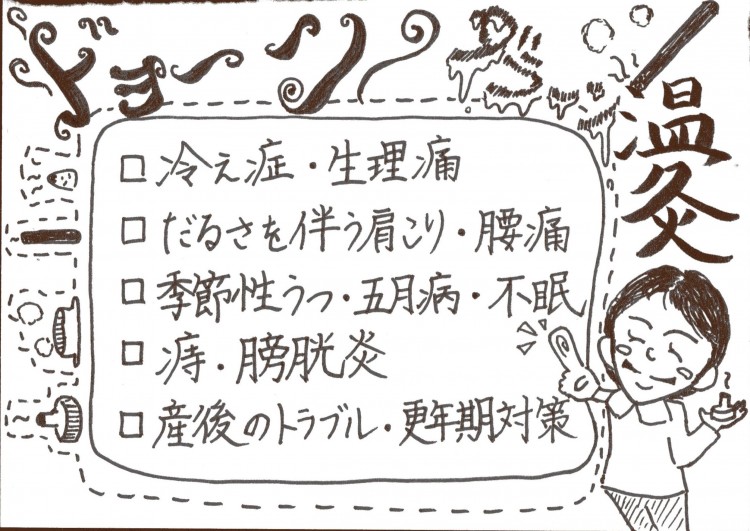 ドョーン
温灸
□ 冷え症・生理痛
□ だるさを伴う肩こり・腰痛
□ 季節性うつ・五月病・不眠
□ 痔・膀胱炎
□ 産後のトラブル・更年期対策